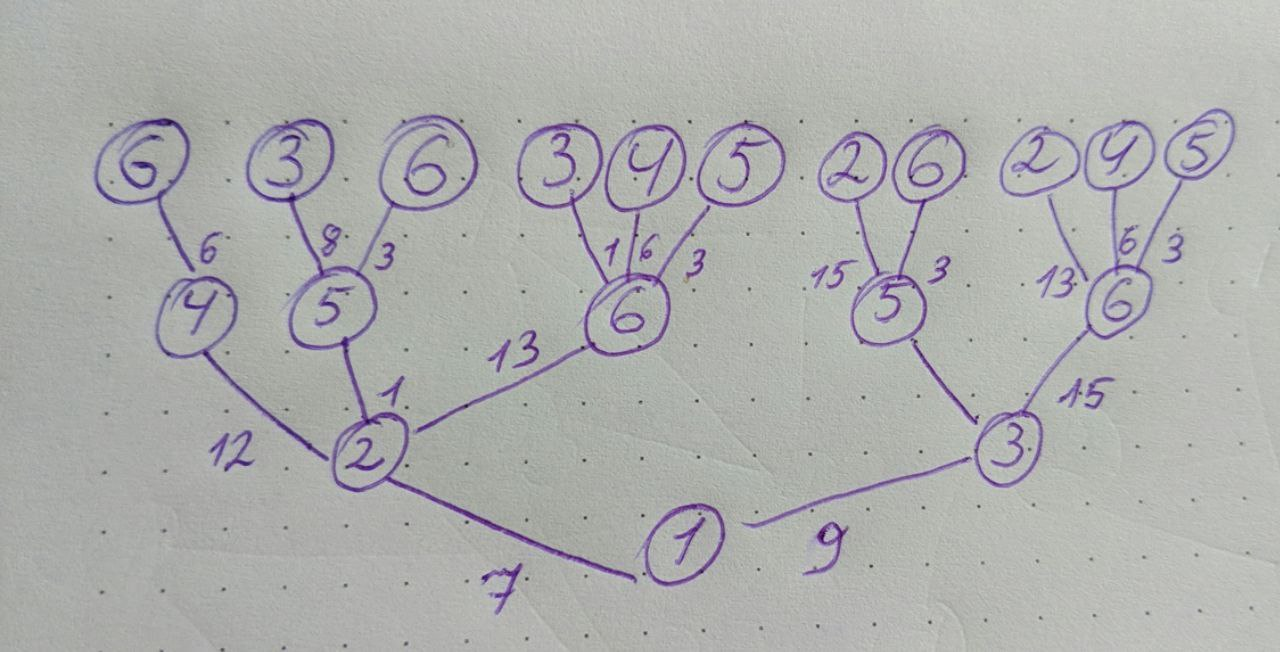 6 3 6 3 4 5 2 6 2 4 5
6 8 3 1 6 3 15 3 13 6 3
4 5 6 5 6
12 1 13 15
2 3
7 1 9